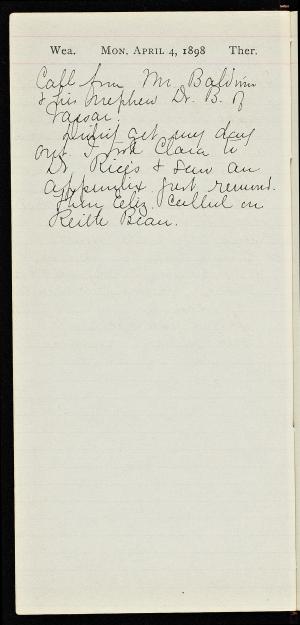 Wea. MON. APRIL 4, 1898 Ther.
Call from Mr. Baldwin
& his nephew Dr. B. of
Vassar.
Didn't get my day
out. I took Clara to
Dr. Rice's & saw an
appendix just removed.
Then Eliz. called on
Keith Bean.